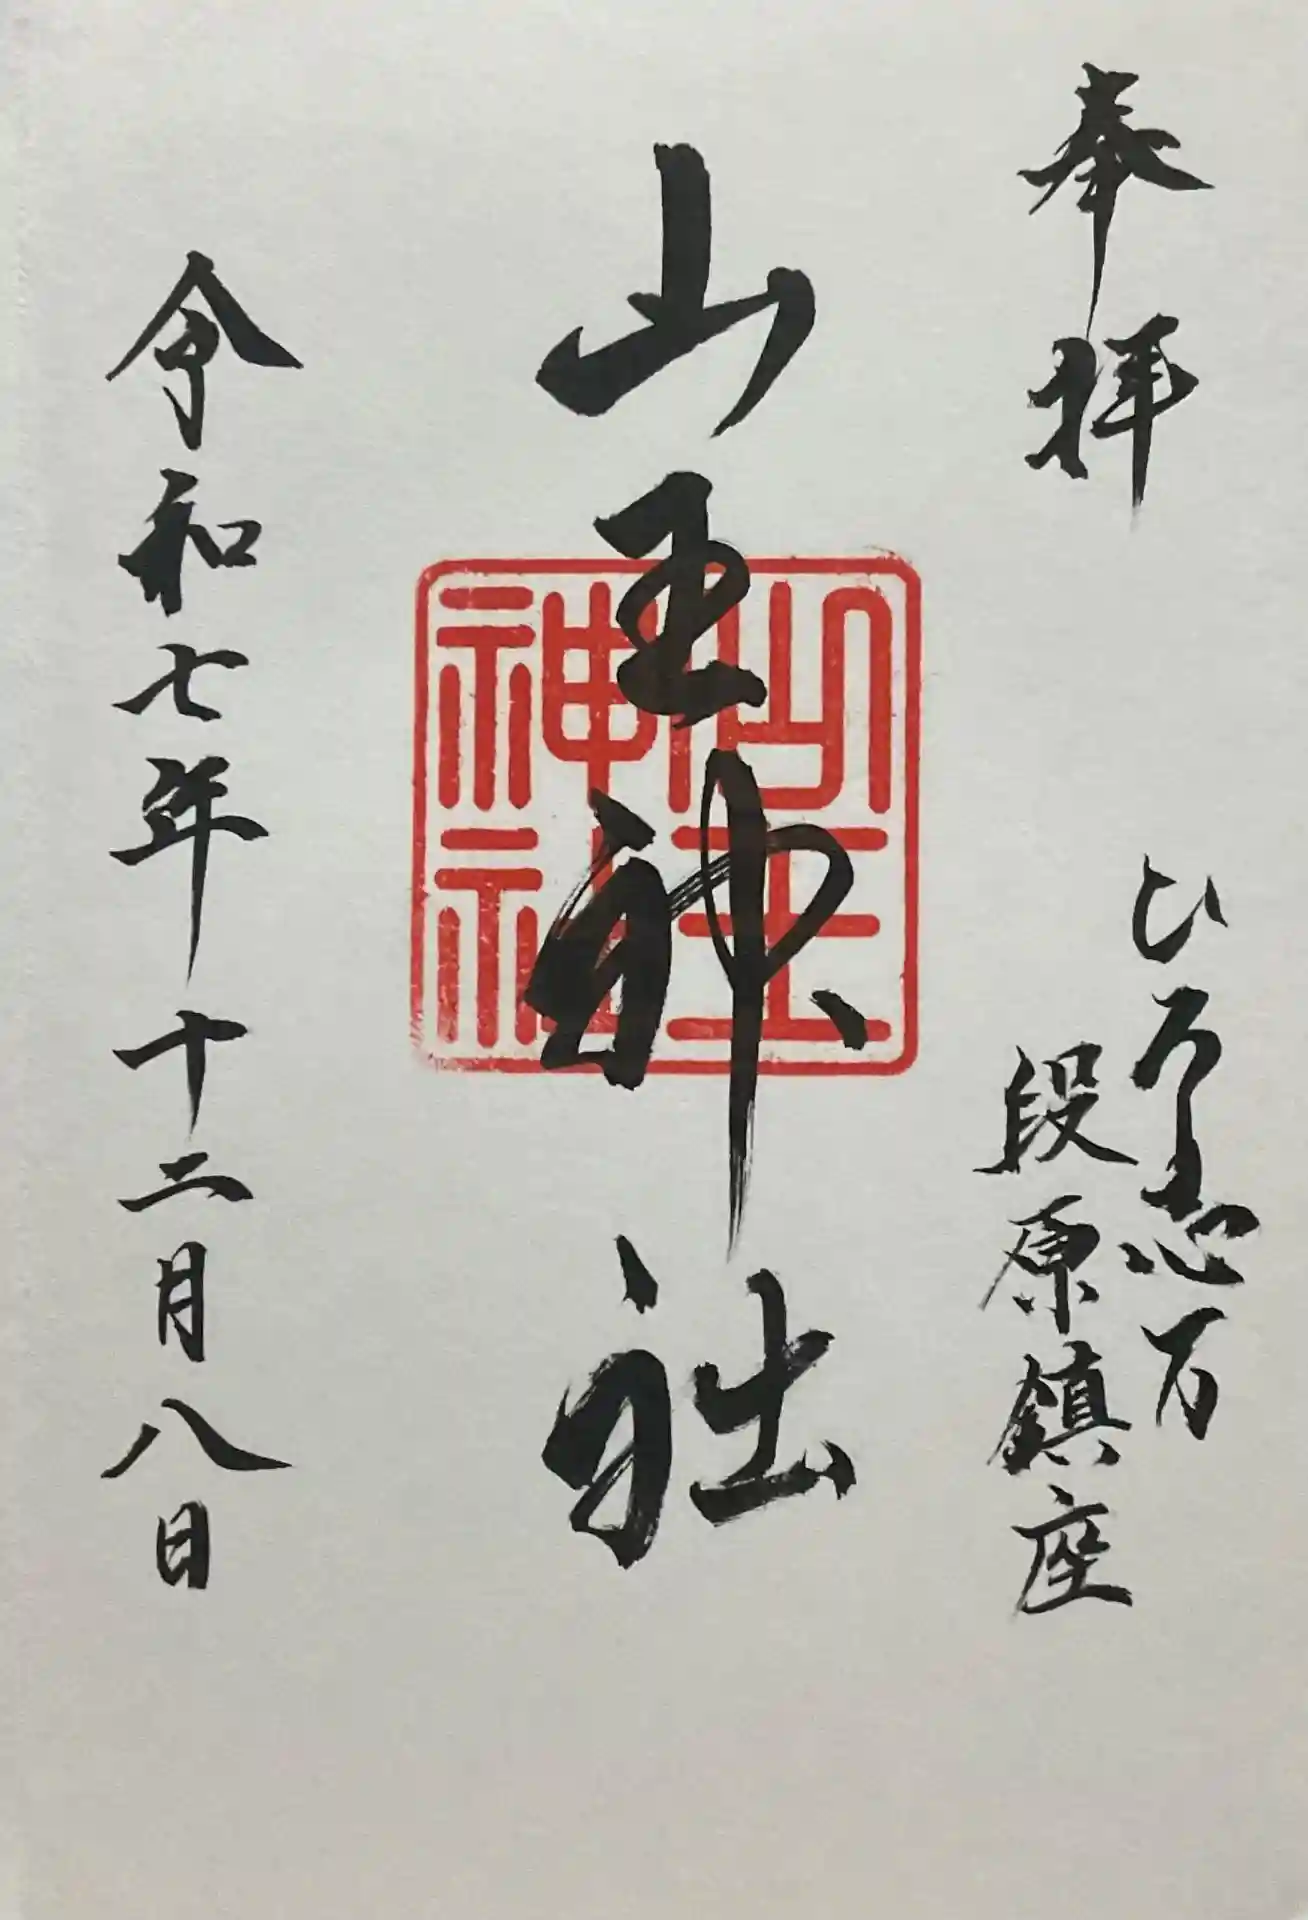 奉拝
ひろ志万
段原鎮座
山王神社
山王
神社
令和七年十二月八日